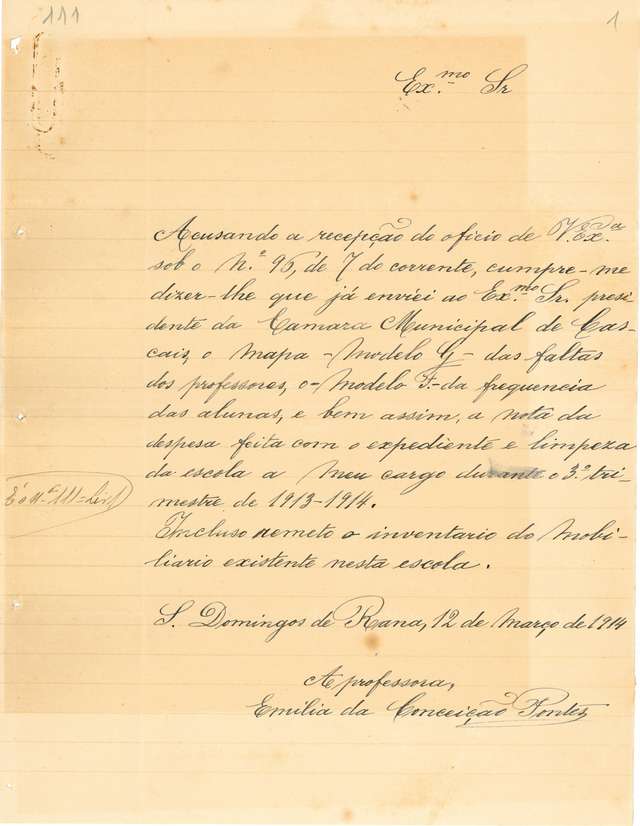 111
1
Ex.mo Sr
Acusando a recepção do oficio de V. Ex.a
sob o N.º 96, de 7 do corrente, cumpre-me
dizer-lhe que já enviei ao Ex.mo Sr. presi
dente da Camara Municipal de Cas-
cais, o mapa - Modelo G - das faltas
dos professores, o - Modelo F - da frequencia
das alunas, e bem assim, a nota da
despesa feita com o expediente e limpeza
da escola a meu cargo durante o 3.º tri-
mestre de 1913-1914.
É o n.º 111 = Liv. 1
Incluso remeto o inventario do mobi-
liario existente nesta escola.
S. Domingos de Rana, 12 de março de 1914
A professora,
Emilia da Conceição Pontes